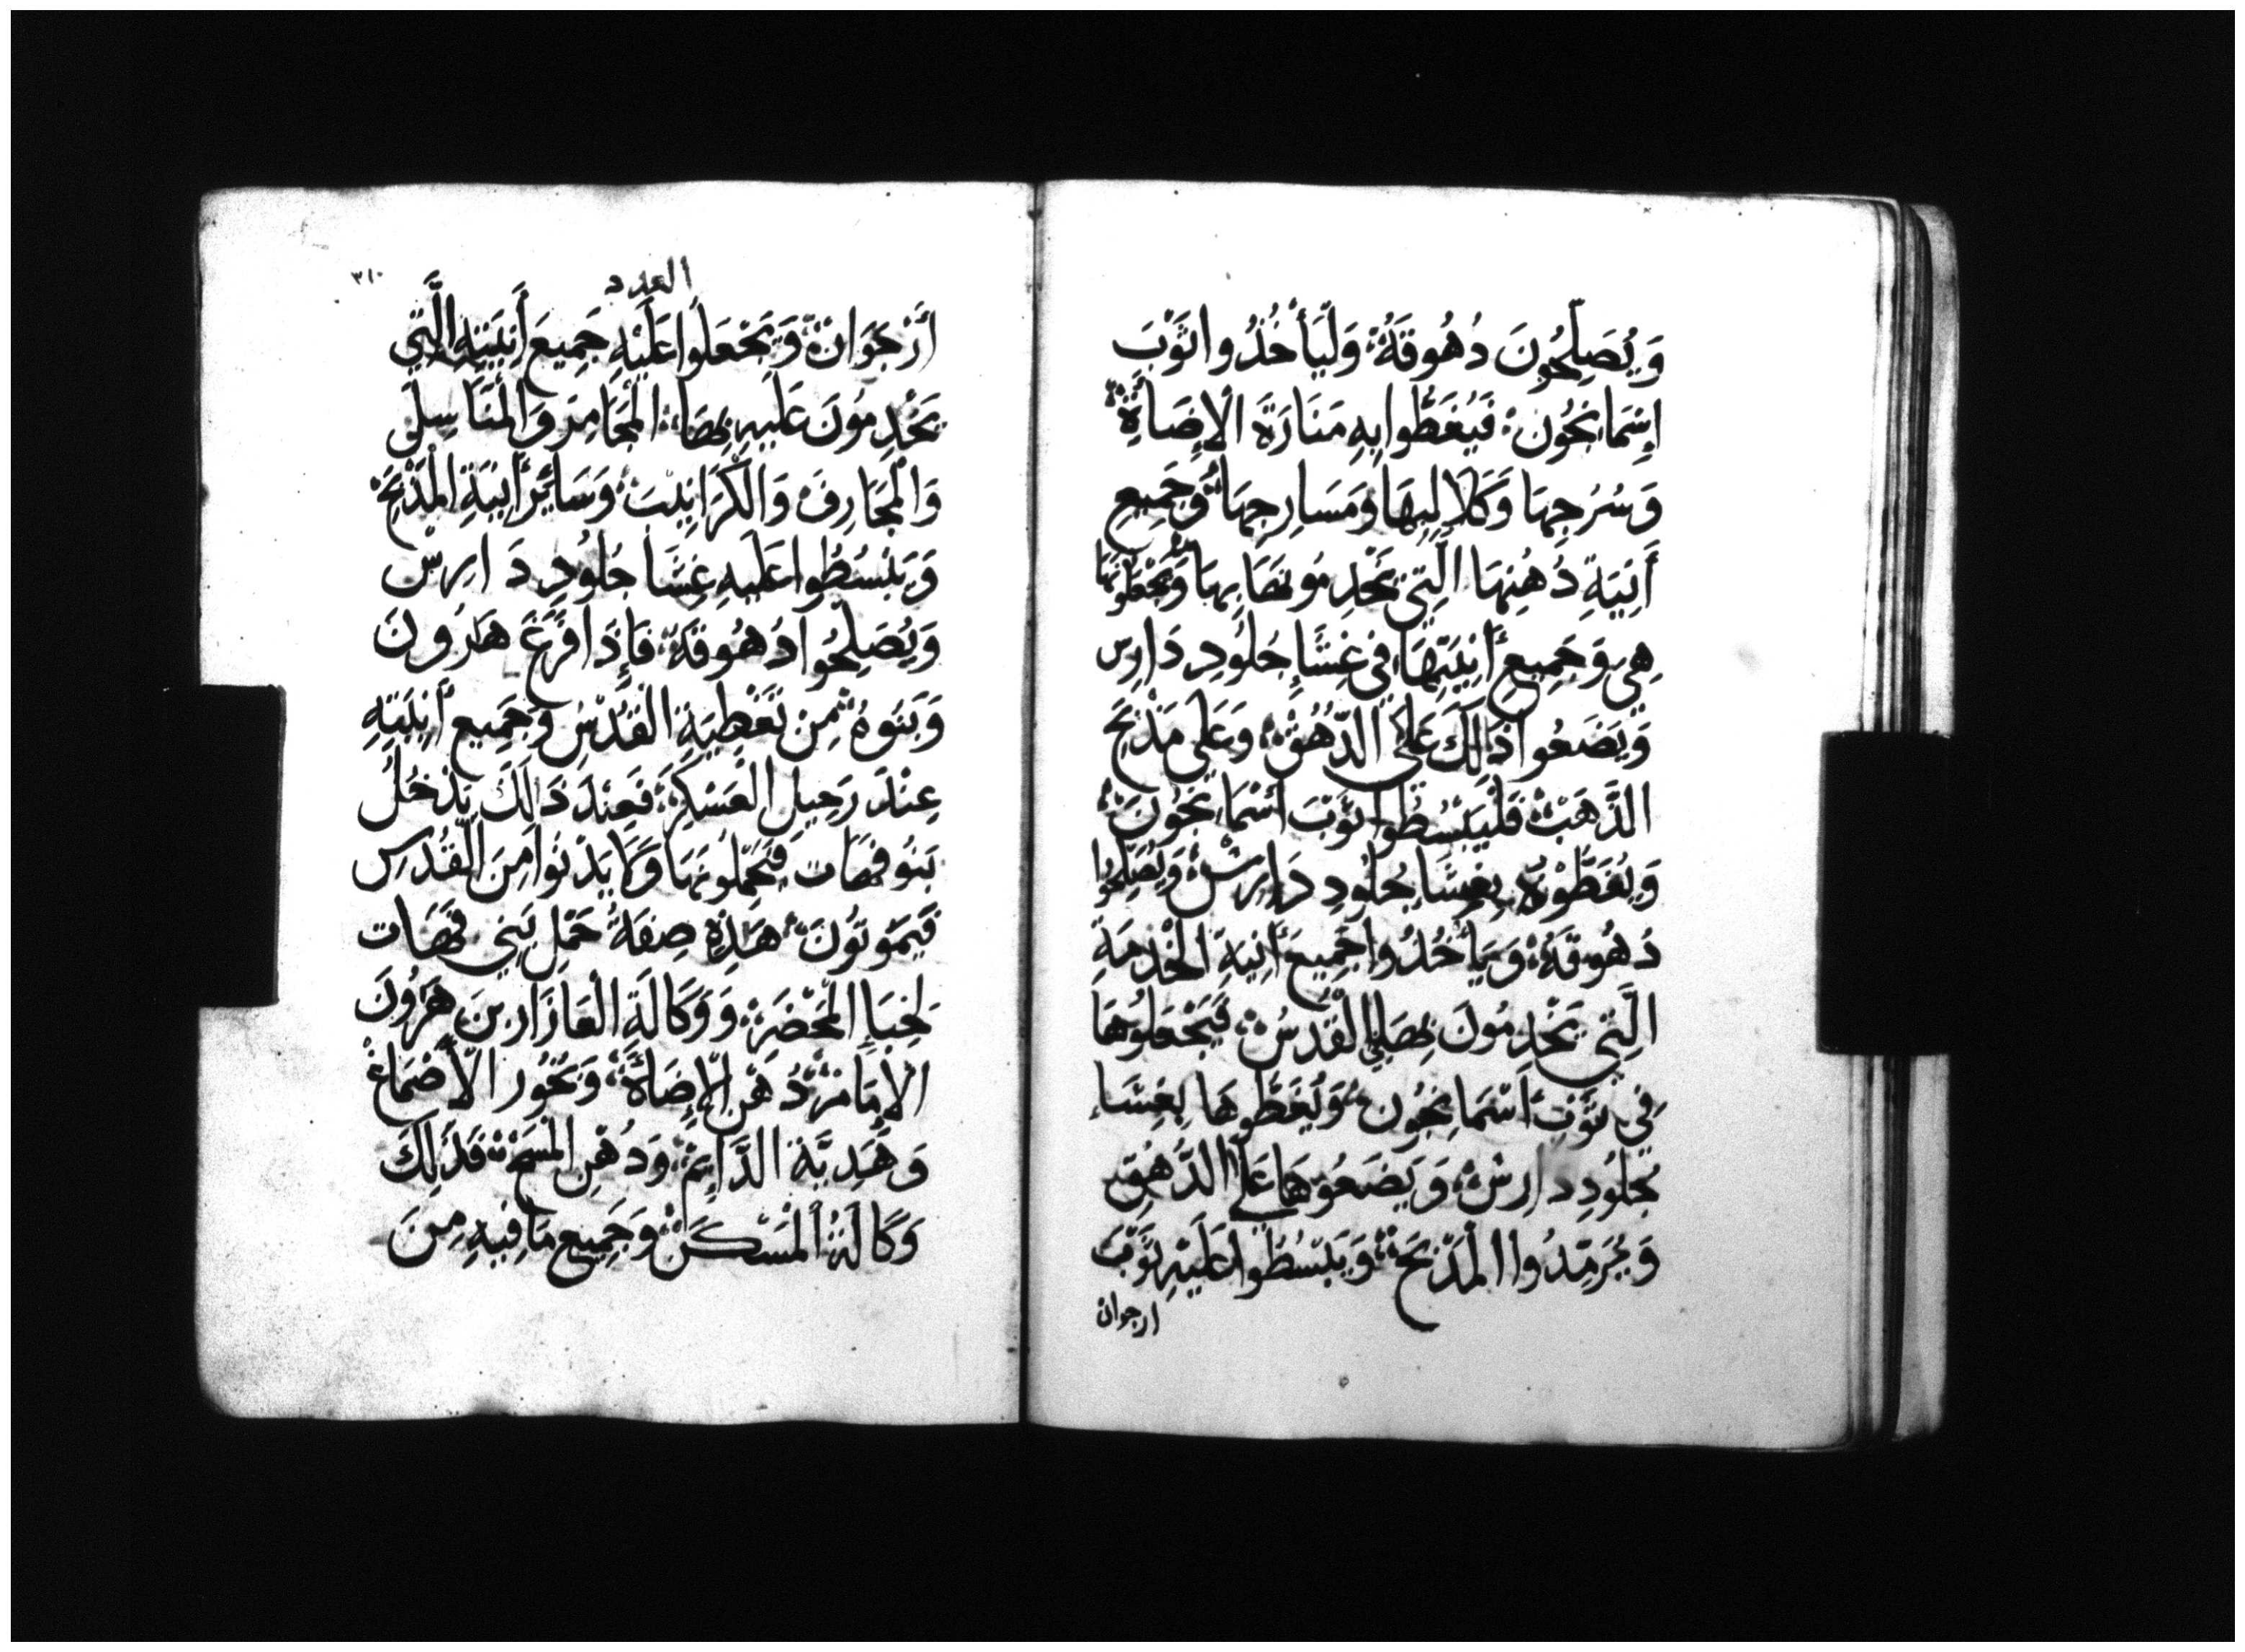 وَيُصَلِّحُونَ دُهُوقَهُ؛ وَلْيَأْخُذُوا ثَوْبَ
إِسْمَانِجُونِ؛ فَيُغَطُّوا بِهِ مَنَارَةَ الْإِضَاةِ؛
وَسُرُجِهَا وَكَلَالِيبِهَا وَمَسَارِجِهَا؛ وَجَمِيعِ
أَنِيَةِ دُهْنِهَا الَّتِي يَخْدِمُونَهَا بِهَا وَيَجْعَلُونَهَا
هِيَ وَجَمِيعِ أَنِيَتِهَا فِي غِشَاءِ جُلُودِ دَارِس
وَيَضَعُوا ذَلِكَ عَلَى الدُّهُقْ؛ وَعَلَى مَذْبَحِ
الذَّهَبْ؛ فَلْيَبْسُطُوا ثَوْبَ أَسْمَانِجُونَ؛
وَيُغَطُّوهُ بِغِشَا جُلُودِ دَارِشْ؛ وَيُصَلِّحُوا
دُهُوقَهُ؛ وَيَأْخُذُوا جَمِيعَ أَنِيَةِ الْخِدْمَةِ
الَّتِي يَخْدِمُونَ بِهَا فِي الْقُدْسْ؛ فَيَجْعَلُوهَا
فِي ثَوْبِ أَسْمَانِجُونِ؛ وَيُغَطُّوهَا بِغِشَاءِ
جُلُودِ دَارِشْ؛ وَيَضَعُوهَا عَلَى الدُّهُوقِ
وَيُرَمِّدُوا الْمَذْبَحَ؛ وَيَبْسُطُوا عَلَيْهِ ثَوْبَ
ارجوان
العدد
٣١٠
أَرْجَوَانْ؛ وَيَجْعَلُوا عَلَيْهِ جَمِيعَ أَنِيَتِهِ الَّتِي
يَخْدِمُونَ عَلَيهِ بِهَا؛ الْمَجَامِرَ وَالْمَنَاسِلَ
وَالْمَجَارِفَ وَالْكَرَانِيبَ؛ وَسَائِرَ أَنِيَةِ الْمَذْبَحَ؛
وَيَبْسُطُوا عَلَيهِ غِشَا جُلُودِ دَارِسْ
وَيُصَلِّحُوا دُهُوقَهُ؛ فَإِذَا فَرَغَ هَارُونَ
وَبَنُوهُ؛ مِن تَغْطِيَةِ الْقُدْسْ وَجَمِيعِ أَنِيَتِهِ
عِنْدَ رَحِيلِ الْعَسْكَرِ؛ فَعِنْدَ ذَالِكَ يَدْخُلُ
بَنُو قهَات فَيَحْمِلُونَهَا وَلَا يَدْنُوا مِنَ الْقُدْسِ
فَيَمُوتُونَ؛ هَذِهِ صِفَةُ حَمْلِ بَنِي قهَات
لِخِبَاءِ الْمَحْضَرْ؛ وَوَكَالَةِ الْعَازَار بنَ هَرُونَ
الْإِمَامْ؛ دُهْنِ الْإِضَاةْ؛ وَبَخُورِ الْأَصْمَاغْ
وَهَدِيَّة الدَّايِمْ؛ وَدُهْنِ الْمَسْحْ؛ فَذَلِكَ
وَكَالَهُ؛ الْمَسْكَنْ؛ وَجَمِيعِ مَا فِيهِ مِنَ